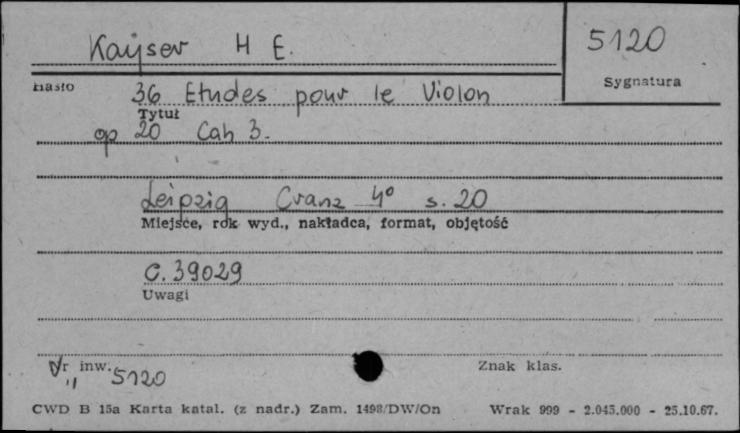 Kayser H E.
5120
Sygnatura
Hasło
36 Etudes pour le Violon
Tytuł
op 20 Cah 3.
Leipzig Cranz 4° s. 20
Miejsce, rok wyd., nakładca, format, objętość
C. 39029
Uwagi
Nr inw. 5120
"
Znak klas.
CWD B 15a Karta katal. (z nadr.) Zam. 1498/DW/On Wrak 999 - 2.045.000 - 25.10.67.